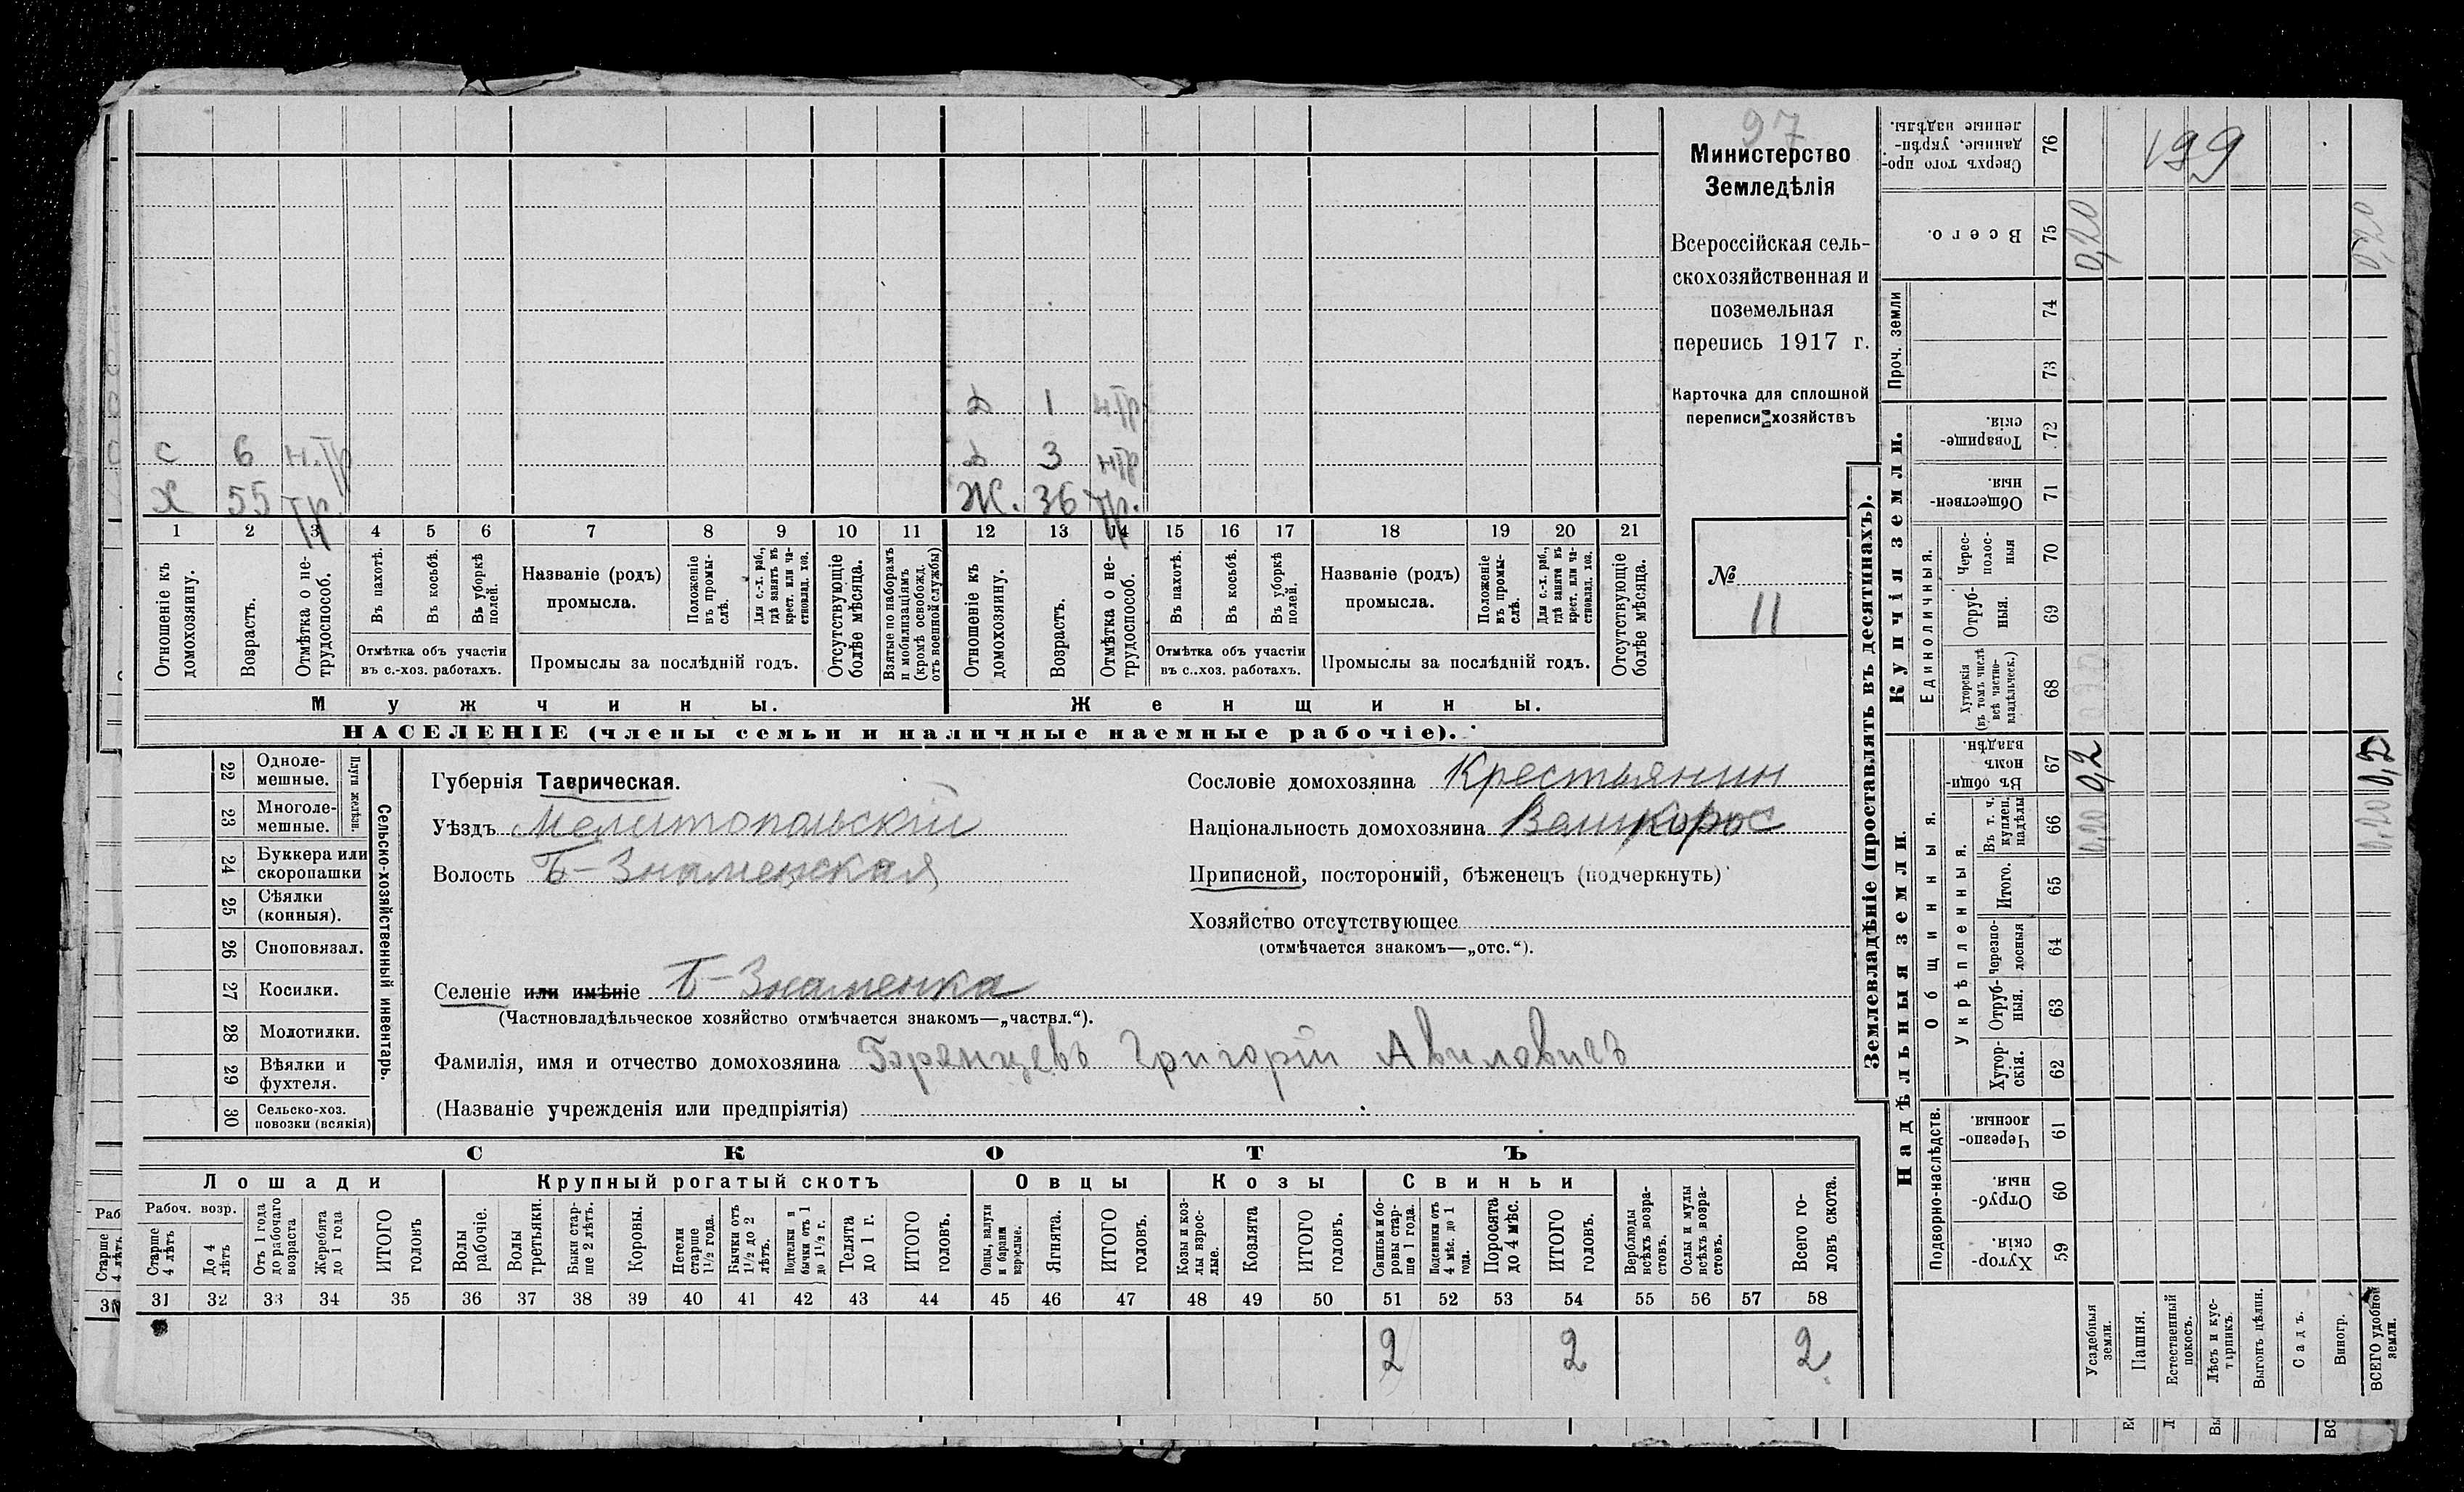 97
Министерство
Земледѣлія
Всероссійская сель-
скохозяйственная и
поземельная
перепись 1917 г.
Карточка для сплошной
переписи хозяйствъ
№
11
Д 1 н.тр.
С 6 н.тр Д 3 н.тр
Х 55 тр Ж. 36 тр.
1 2 3 4 5 6 7 8 9 10 11 12 13 14 15 16 17 18 19 20 21
Отношеніе къ домохозяину.
Возрастъ.
Отмѣтка о не-трудоспособ.
Въ пахотѣ.
Въ косьбѣ.
Въ уборкѣ полей.
Отмѣтка объ участіи
въ с.-хоз. работахъ.
Названіе (родъ)
промысла.
Положеніе въ промы-слѣ.
Для с.-х. раб., гдѣ занятъ въ крест. или ча-стновлад. хоз.
Промыслы за послѣдній годъ.
Отсутствующіе болѣе мѣсяца.
Взятые по наборамъ и мобилизаціямъ (кромѣ освобожд. отъ военной службы)
Отношеніе къ домохозяину.
Возрастъ.
Отмѣтка о не-трудоспособ.
Въ пахотѣ.
Въ косьбѣ.
Въ уборкѣ полей.
Отмѣтка объ участіи
въ с..хоз. работахъ.
Названіе (родъ)
промысла.
Положеніе въ промы-слѣ.
Для с.-х. раб., гдѣ занята въ крест. или ча-стновлад. хоз.
Промыслы за послѣдній годъ.
Отсутствующіе болѣе мѣсяца.
Мужчины. Женщины.
НАСЕЛЕНІЕ (члены семьи и наличные наемные рабочіе).
22 Одноле-мешные.
23 Многоле-мешные.
Плуги желѣзн.
24 Буккера или скоропашки
25 Сѣялки (конныя).
26 Сноповязал.
27 Косилки.
28 Молотилки.
29 Вѣялки и фухтеля.
30 Сельско-хоз. повозки (всякія)
Сельско-хозяйственный инвентарь.
Губернія Таврическая.
Уѣздъ Мелитопольскій
Волость Б-Знаменская
Сословіе домохозяина Крестьянин
Національность домохозяина Великорос
Приписной, посторонній, бѣженецъ (подчеркнуть)
Хозяйство отсутствующее
(отмѣчается знакомъ—„отс.“).
Селеніе или имѣніе Б-Знаменка
(Частновладѣльческое хозяйство отмѣчается знакомъ—„частвл.“).
Фамилія, имя и отчество домохозяина Григорій Авиловичъ
(Названіе учрежденія или предпріятія)
СКОТЪ
Лошади Крупный рогатый скотъ Овцы Козы Свиньи
Рабоч. возр.
Старше 4 лѣтъ
До 4 лѣтъ
Отъ 1 года до рабочаго возраста
Жеребята до 1 года
ИТОГО головъ
Волы рабочіе.
Волы третьяки.
Быки стар-ше 2 лѣтъ.
Коровы.
Нетели старше 1½ года.
Бычки отъ 1½ до 2 лѣтъ.
Подтелки и бычки отъ 1 до 1½ г.
Телята до 1 г.
ИТОГО головъ.
Овцы, валухи и бараны взрослые.
Ягнята.
ИТОГО головъ.
Козы и коз-лы взрос-лые.
Козлята
ИТОГО головъ.
Свиньи и бо-ровы стар-ше 1 года.
Подсвинки отъ 4 мѣс. до 1 года.
Поросята до 4 мѣс.
ИТОГО головъ.
Верблюды всѣхъ возра-стовъ.
Ослы и мулы всѣхъ возра-стовъ.
Всего го-ловъ скота.
31 32 33 34 35 36 37 38 39 40 41 42 43 44 45 46 47 48 49 50 51 52 53 54 55 56 57 58
2 2 2
Землевладѣніе (проставлять въ десятинахъ).
Надѣльныя земли. Купчія земли. Проч. земли
Подворно-наслѣдств.
Общинныя.
Укрѣпленныя.
Единоличныя.
Хутор-скія. 59
Отруб-ныя. 60
Черезпо-лосныя 61
Хутор-скія. 62
Отруб-ныя. 63
Черезпо-лосныя 64
Итого. 65
Въ т. ч. куплен. надѣлы 66
Въ общин-номъ владѣн. 67
Хуторскія (въ томъ числѣ всѣ частно-владѣльческ.) 68
Отруб-ныя. 69
Черес-полос-ныя 70
Обществен-ныя. 71
Товарище-скія. 72
73
74
Всего. 75
Сверхъ того про-данные, укрѣп-ленные надѣлы. 76
Усадебныя земли. 0,20 0,2 0,20
Пашня.
Естественный покосъ.
Лѣсъ и кус-тарникъ.
Выгонъ цѣлин.
Садъ.
Виногр.
ВСЕГО удобной земли. 0,20 0,2 0,20
199